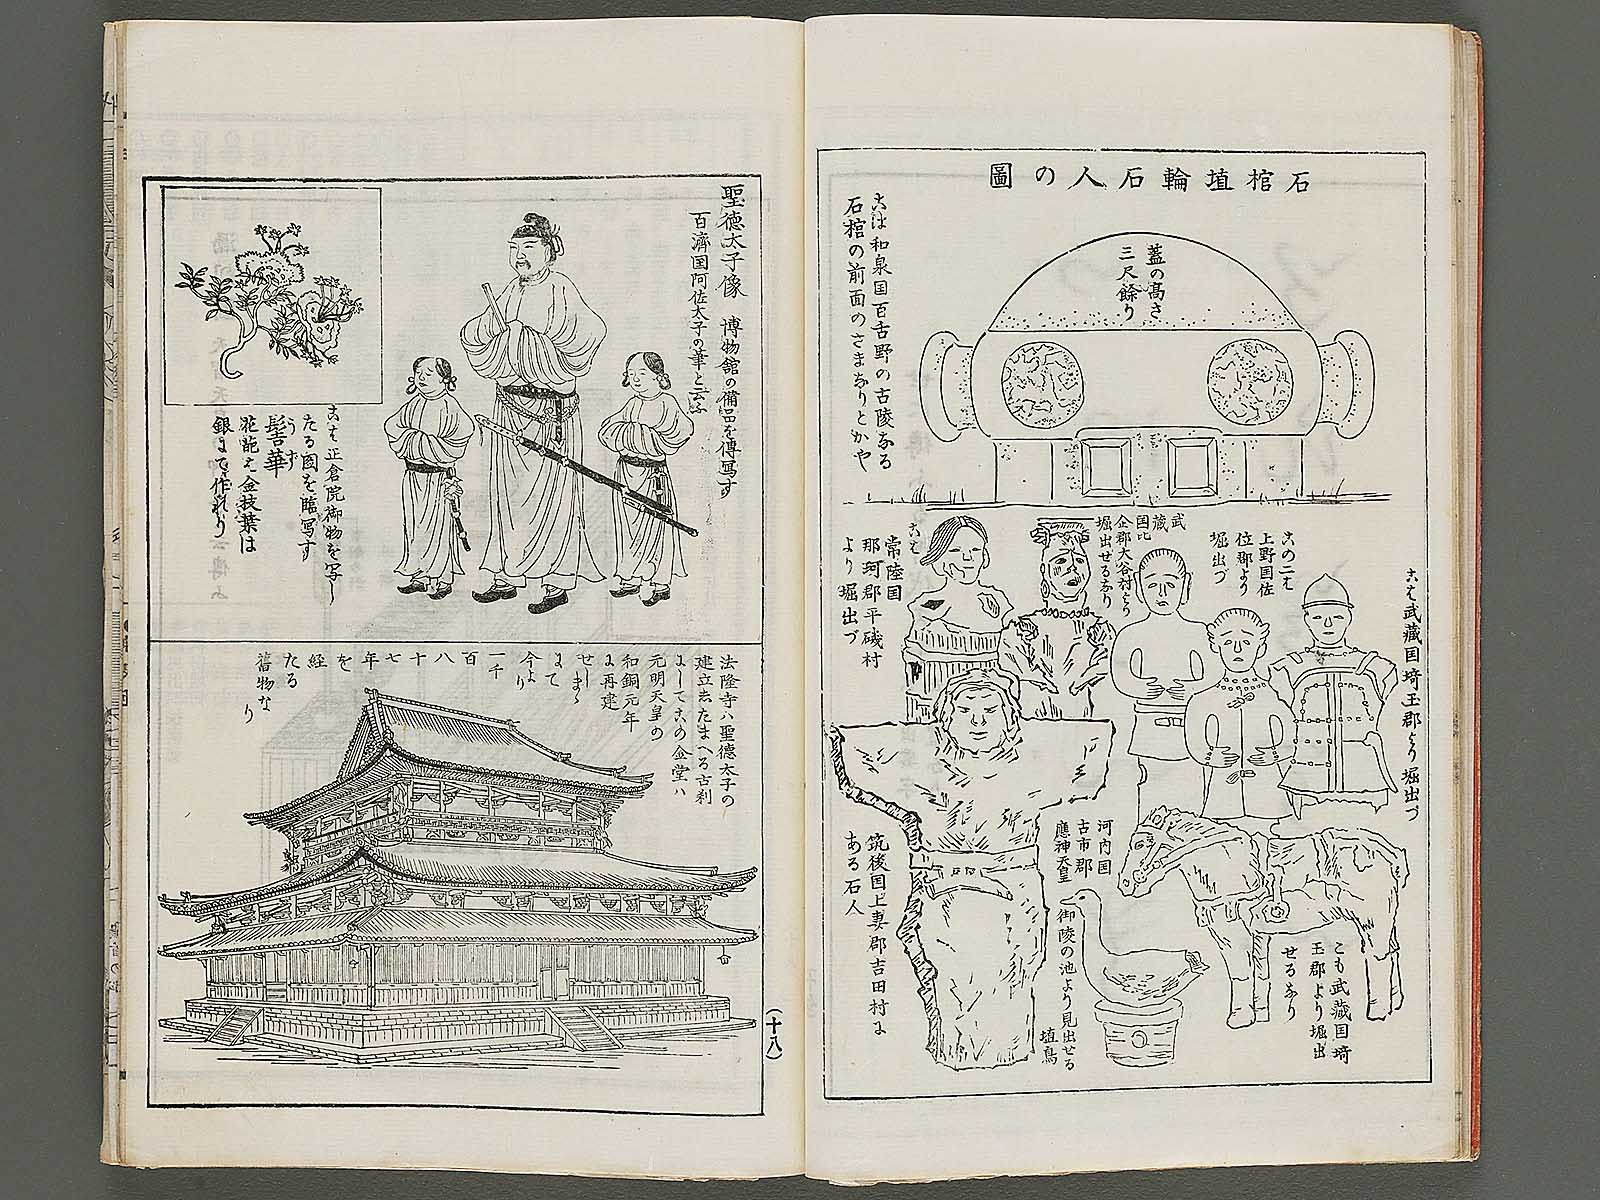 石棺埴輪石人の圖
こは和泉国百舌野の古陵なる
石棺の前面のさまなりとかや
蓋の高さ
三尺餘り
こは武藏国埼玉郡より堀出づ
この二は
上野国佐
位郡より
堀出づ
武藏国比
企郡大谷村より
堀出せるなり
こは
常陸国
那珂郡平磯村
より堀出づ
こも武藏国埼
玉郡より堀出
せるなり
河内国
古市郡
應神天皇
御陵の池より見出せる
埴鳥
筑後国上妻郡吉田村に
ある石人
聖徳太子像 博物館の備品を傳写す
百濟国阿佐太子の筆と云ふ
こは正倉院御物を写し
たる圖を臨写す
髻華
うず
花蕊は金枝葉は
銀にて作れり
法隆寺ハ聖徳太子の
建立したまへる古刹
にしてこの金堂ハ
元明天皇の
和銅元年
に再建
せしま
にて
今より
一千
百
八
十
七
年
を
経
たる
舊物な
り
(十八)